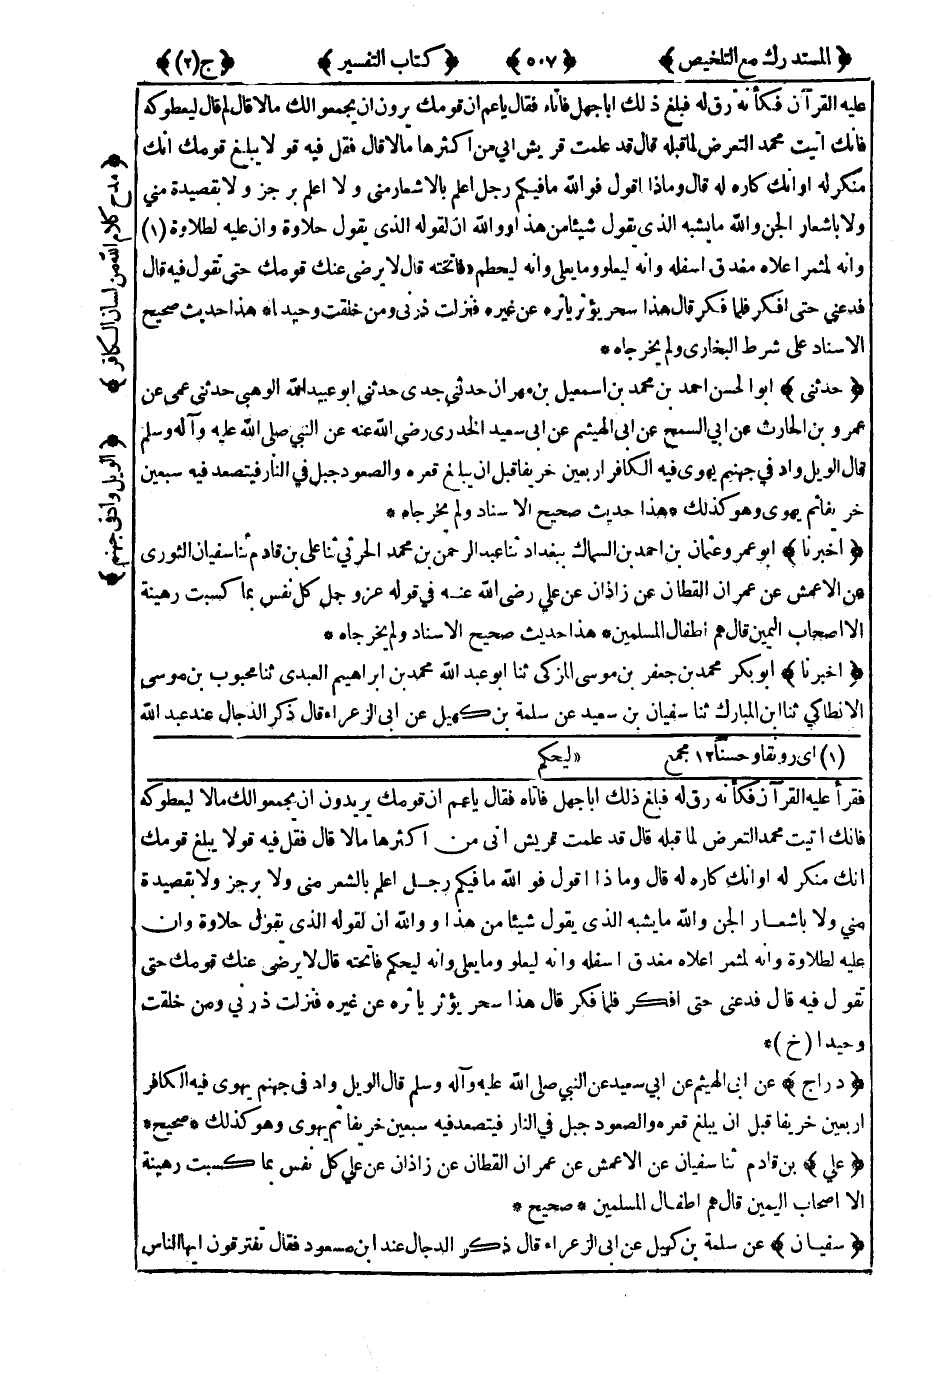 ﴿ المستدرك مع التلخيص ﴾ ﴿ ٥٠٧ ﴾ ﴿ كتاب التفسير ﴾ ﴿ ج (٢) ﴾
عليه القرآن فكأنه رق له فبلغ ذلك اباجهل فاتاه فقال ياعم ان قومك يرون ان يجمعوا لك مالا قال لم قال ليعطوكه
فانك اتيت محمد التعرض لما قبله قال قد علمت قريش اني من اكثرها مالا قال فقل فيه قولا يبلغ قومك انك
منكر له او انك كاره له قال وماذا اقول فو الله ما فيكم رجل اعلم بالاشعار مني ولا اعلم برجز ولا بقصيدة مني
ولا باشعار الجن والله ما يشبه الذى يقول شيئا من هذا ووالله ان لقوله الذى يقول حلاوة وان عليه لطلاوة (١)
وانه لمثمر اعلاه مغدق اسفله وانه ليعلو وما يعلى وانه ليحطم «ما تحته قال لا يرضى عنك قومك حتى تقول فيه قال
فدعني حتى افكر فلما فكر قال هذا سحر يؤثر ياثره عن غيره فنزلت ذرنى ومن خلقت وحيدا * هذا حديث صحيح
الاسناد على شرط البخارى ولم يخرجاه *
﴿ حدثني ﴾ ابو الحسن احمد بن محمد بن اسمعيل بن مهران حدثني جدى حدثني ابو عبيد الله الوهبي حدثني عمى عن
عمرو بن الحارث عن ابي السمح عن ابى الهيثم عن ابى سعيد الخدرى رضى الله عنه عن النبي صلى الله عليه وآله وسلم
قال الويل واد في جهنم يهوى فيه الكافر اربعين خريفا قبل ان يبلغ قعره والصعود جبل في النار فيتصعد فيه سبعين
خريفا ثم يهوى وهو كذلك * هذا حديث صحيح الاسناد ولم يخرجاه *
﴿ اخبرنا ﴾ ابو عمرو عثمان بن احمد بن السماك ببغداد ثنا عبد الرحمن بن محمد الحرثي ثنا على بن قادم ثنا سفيان الثورى
عن الاعمش عن عمران القطان عن زاذان عن علي رضى الله عنه في قوله عز وجل كل نفس بما كسبت رهينة
الا اصحاب اليمين قال هم اطفال المسلمين * هذا حديث صحيح الاسناد ولم يخرجاه *
﴿ اخبرنا ﴾ ابو بكر محمد بن جعفر بن موسى المزكى ثنا ابو عبد الله محمد بن ابراهيم العبدى ثنا محبوب بن موسى
الانطاكي ثنا ابن المبارك ثنا سفيان بن سعيد عن سلمة بن كهيل عن ابى الزعراء قال ذكر الدجال عند عبد الله
(١) اى رونقا وحسنا ١٢ مجمع «ليحكم
فقرأ عليه القرآن فكأنه رق له فبلغ ذلك اباجهل فاتاه فقال ياعم ان قومك يريدون ان يجمعوا لك مالا ليعطوكه
فانك اتيت محمد التعرض لما قبله قال قد علمت قريش انى من اكثرها مالا قال فقل فيه قولا يبلغ قومك
انك منكر له او انك كاره له قال وماذا اقول فو الله ما فيكم رجل اعلم بالشعر منى ولا برجز ولا بقصيدة
مني ولا باشعار الجن والله ما يشبه الذى يقول شيئا من هذا ووالله ان لقوله الذى يقول حلاوة وان
عليه لطلاوة وانه لمثمر اعلاه مغدق اسفله وانه ليعلو وما يعلى وانه ليحكم ما تحته قال لا يرضى عنك قومك حتى
تقول فيه قال فدعنى حتى افكر فلما فكر قال هذا سحر يؤثر ياثره عن غيره فنزلت ذرني ومن خلقت
وحيدا (خ) *
﴿ دراج ﴾ عن ابى الهيثم عن ابي سعيد عن النبي صلى الله عليه وآله وسلم قال الويل واد فى جهنم يهوى فيه الكافر
اربعين خريفا قبل ان يبلغ قعره والصعود جبل في النار فيتصعد فيه سبعين خريفا ثم يهوى وهو كذلك * صحيح *
﴿ علي ﴾ بن قادم ثنا سفيان عن الاعمش عن عمران القطان عن زاذان عن علي كل نفس بما كسبت رهينة
الا اصحاب اليمين قال هم اطفال المسلمين * صحيح *
﴿ سفيان ﴾ عن سلمة بن كهيل عن ابى الزعراء قال ذكر الدجال عند ابن مسعود فقال تفترقون ايها الناس
﴿ مدح كلام الله من لسان الكافر ﴾
﴿ الويل واد فى جهنم ﴾